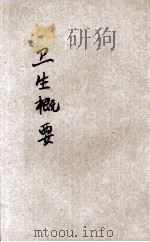 研狗
卫生概要
mtoou.info